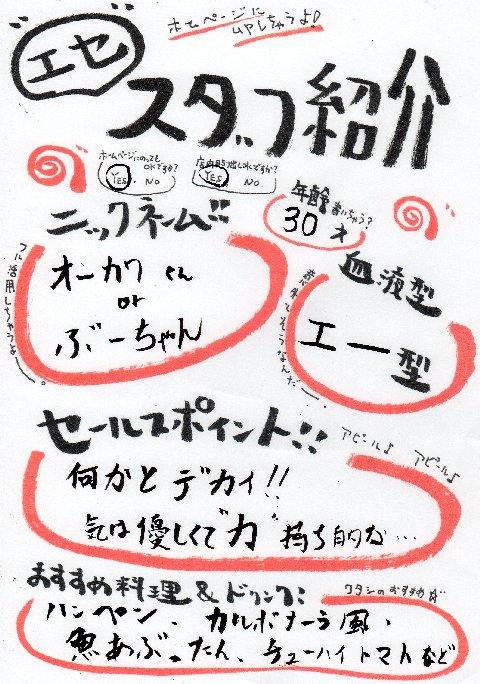 ホームページに
UPしちゃうよ!
エセ
スタッフ紹介
ホームページにのっても
OKですか?
YES. NO
店内貼り出しOKですか?
YES. NO.
ニックネーム!!
オーカワ くん
or
ぶーちゃん
フル活用しちゃうよ〜。
年齢 書いちゃう?
30才
血液型
エー型
セールスポイント!!
アピール♪ アピール♪
何かと デカイ!!
気は優しくて力持ち的な…
おすすめ料理&ドリンク:
ワタシのおすすめ
ハンペン、カルボナーラ風、
魚あぶったん、チューハイトマトなど